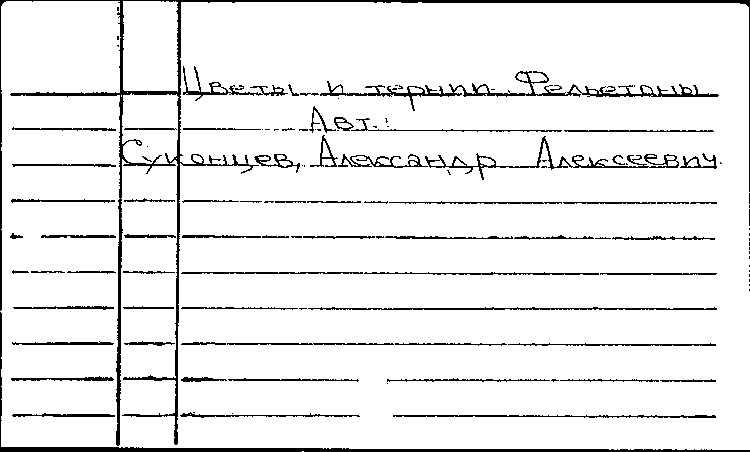 Цветы и тернии. Фельетоны
Авт.:
Суконцев, Александр Алексеевич.